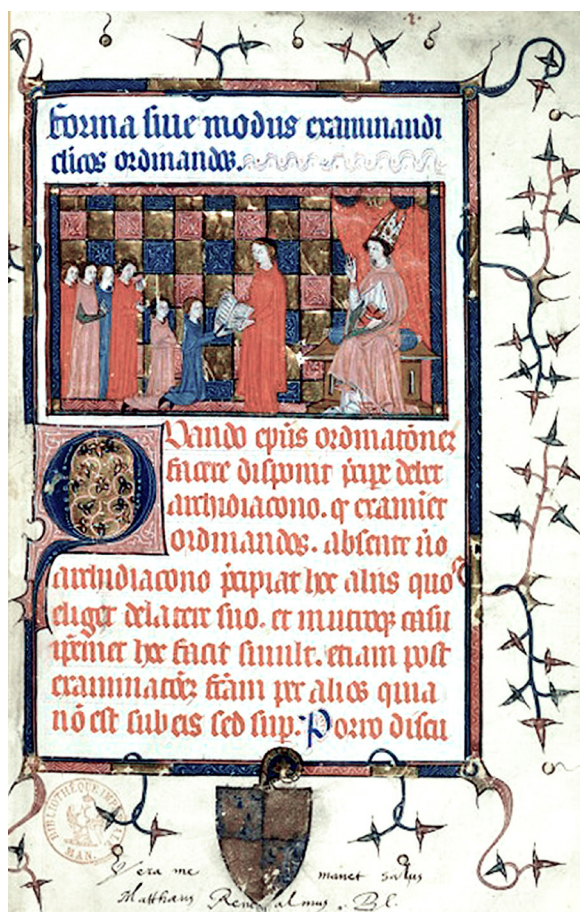 forma siue modus examinandi
clicos ordinandos.
Quando epus ordinatonez
facere disponit pcipe debet
archidiacono. q examiet
ordinandos. absente uo
archidiacono pcipiat hoc aliis quos
eliget de latere suo. et in utroq casu
ipemet hoc facit simult. etiam post
examinacoez fcam per alios quia
no est sub eis sed sup. Porro discu
BIBLIOTHÈQUE IMPÉRIALE
MAN.
Vera me manet salus
Matthaus